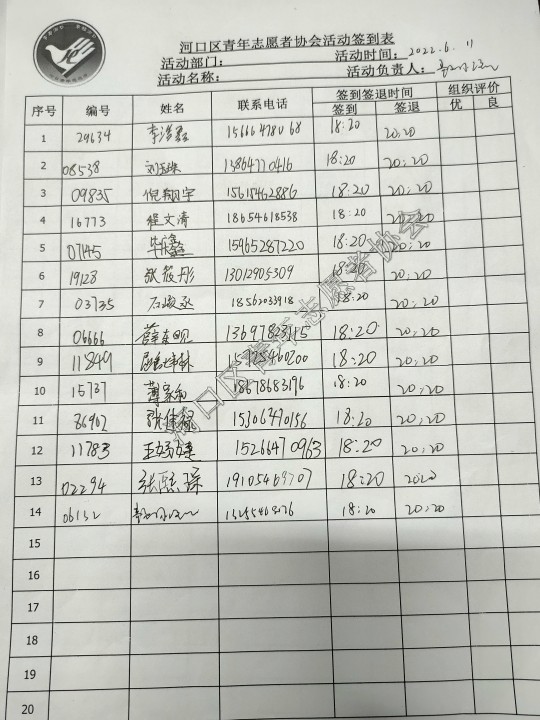 河口区青年志愿者协会活动签到表
活动部门： 活动时间：2022.6.11
活动名称： 活动负责人：
序号 编号 姓名 联系电话 签到签退时间 组织评价
签到 签退 优 良
1 29634 15666478068 18:20 20:20
2 08538 13864770416 18:20 20:20
3 09835 倪翔宇 15614462886 18:20 20:20
4 16773 程文清 18654618538 18:20 20:20
5 07145 15965287220 18:20 20:20
6 19128 张筱彤 13012905309 18:20 20:20
7 03735 石峻丞 18562033918 18:20 20:20
8 06666 18:20 20:20
9 11849 18:20 20:20
10 15737 18678683196 18:20 20:20
11 36902 张佳铭 15306470156 18:20 20:20
12 11783 15266470963 18:20 20:20
13 02294 张熙琛 19105469707 18:20 2020
14 06132 18:20 20:20
15
16
17
18
19
20
河口区青年志愿者协会